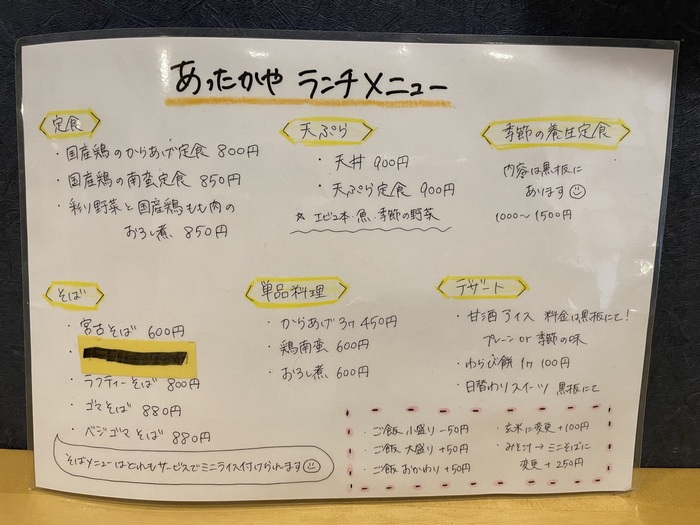 あったかや ランチメニュー
定食
・国産鶏のからあげ定食 800円
・国産鶏の南蛮定食 850円
・彩り野菜と国産鶏もも肉の
おろし煮 850円
天ぷら
・天丼 900円
・天ぷら定食 900円
☆ エビ2本・魚・季節の野菜
季節の養生定食
内容は黒板に
あります☺
1000〜1500円
そば
・宮古そば 600円
・ラフティーそば 800円
・ゴマそば 880円
・ベジゴマそば 880円
そばメニューはどれもサービスでミニライス付けられます☺
単品料理
・からあげ3ケ 450円
・鶏南蛮 600円
・おろし煮 600円
デザート
・甘酒アイス 料金は黒板にて!
プレーン or 季節の味
・わらび餅 1ケ 100円
・日替わりスイーツ 黒板にて
・ご飯 小盛り -50円
・ご飯 大盛り +50円
・ご飯 おかわり +50円
・玄米に変更 +100円
・みそ汁→ミニそばに
変更 +250円